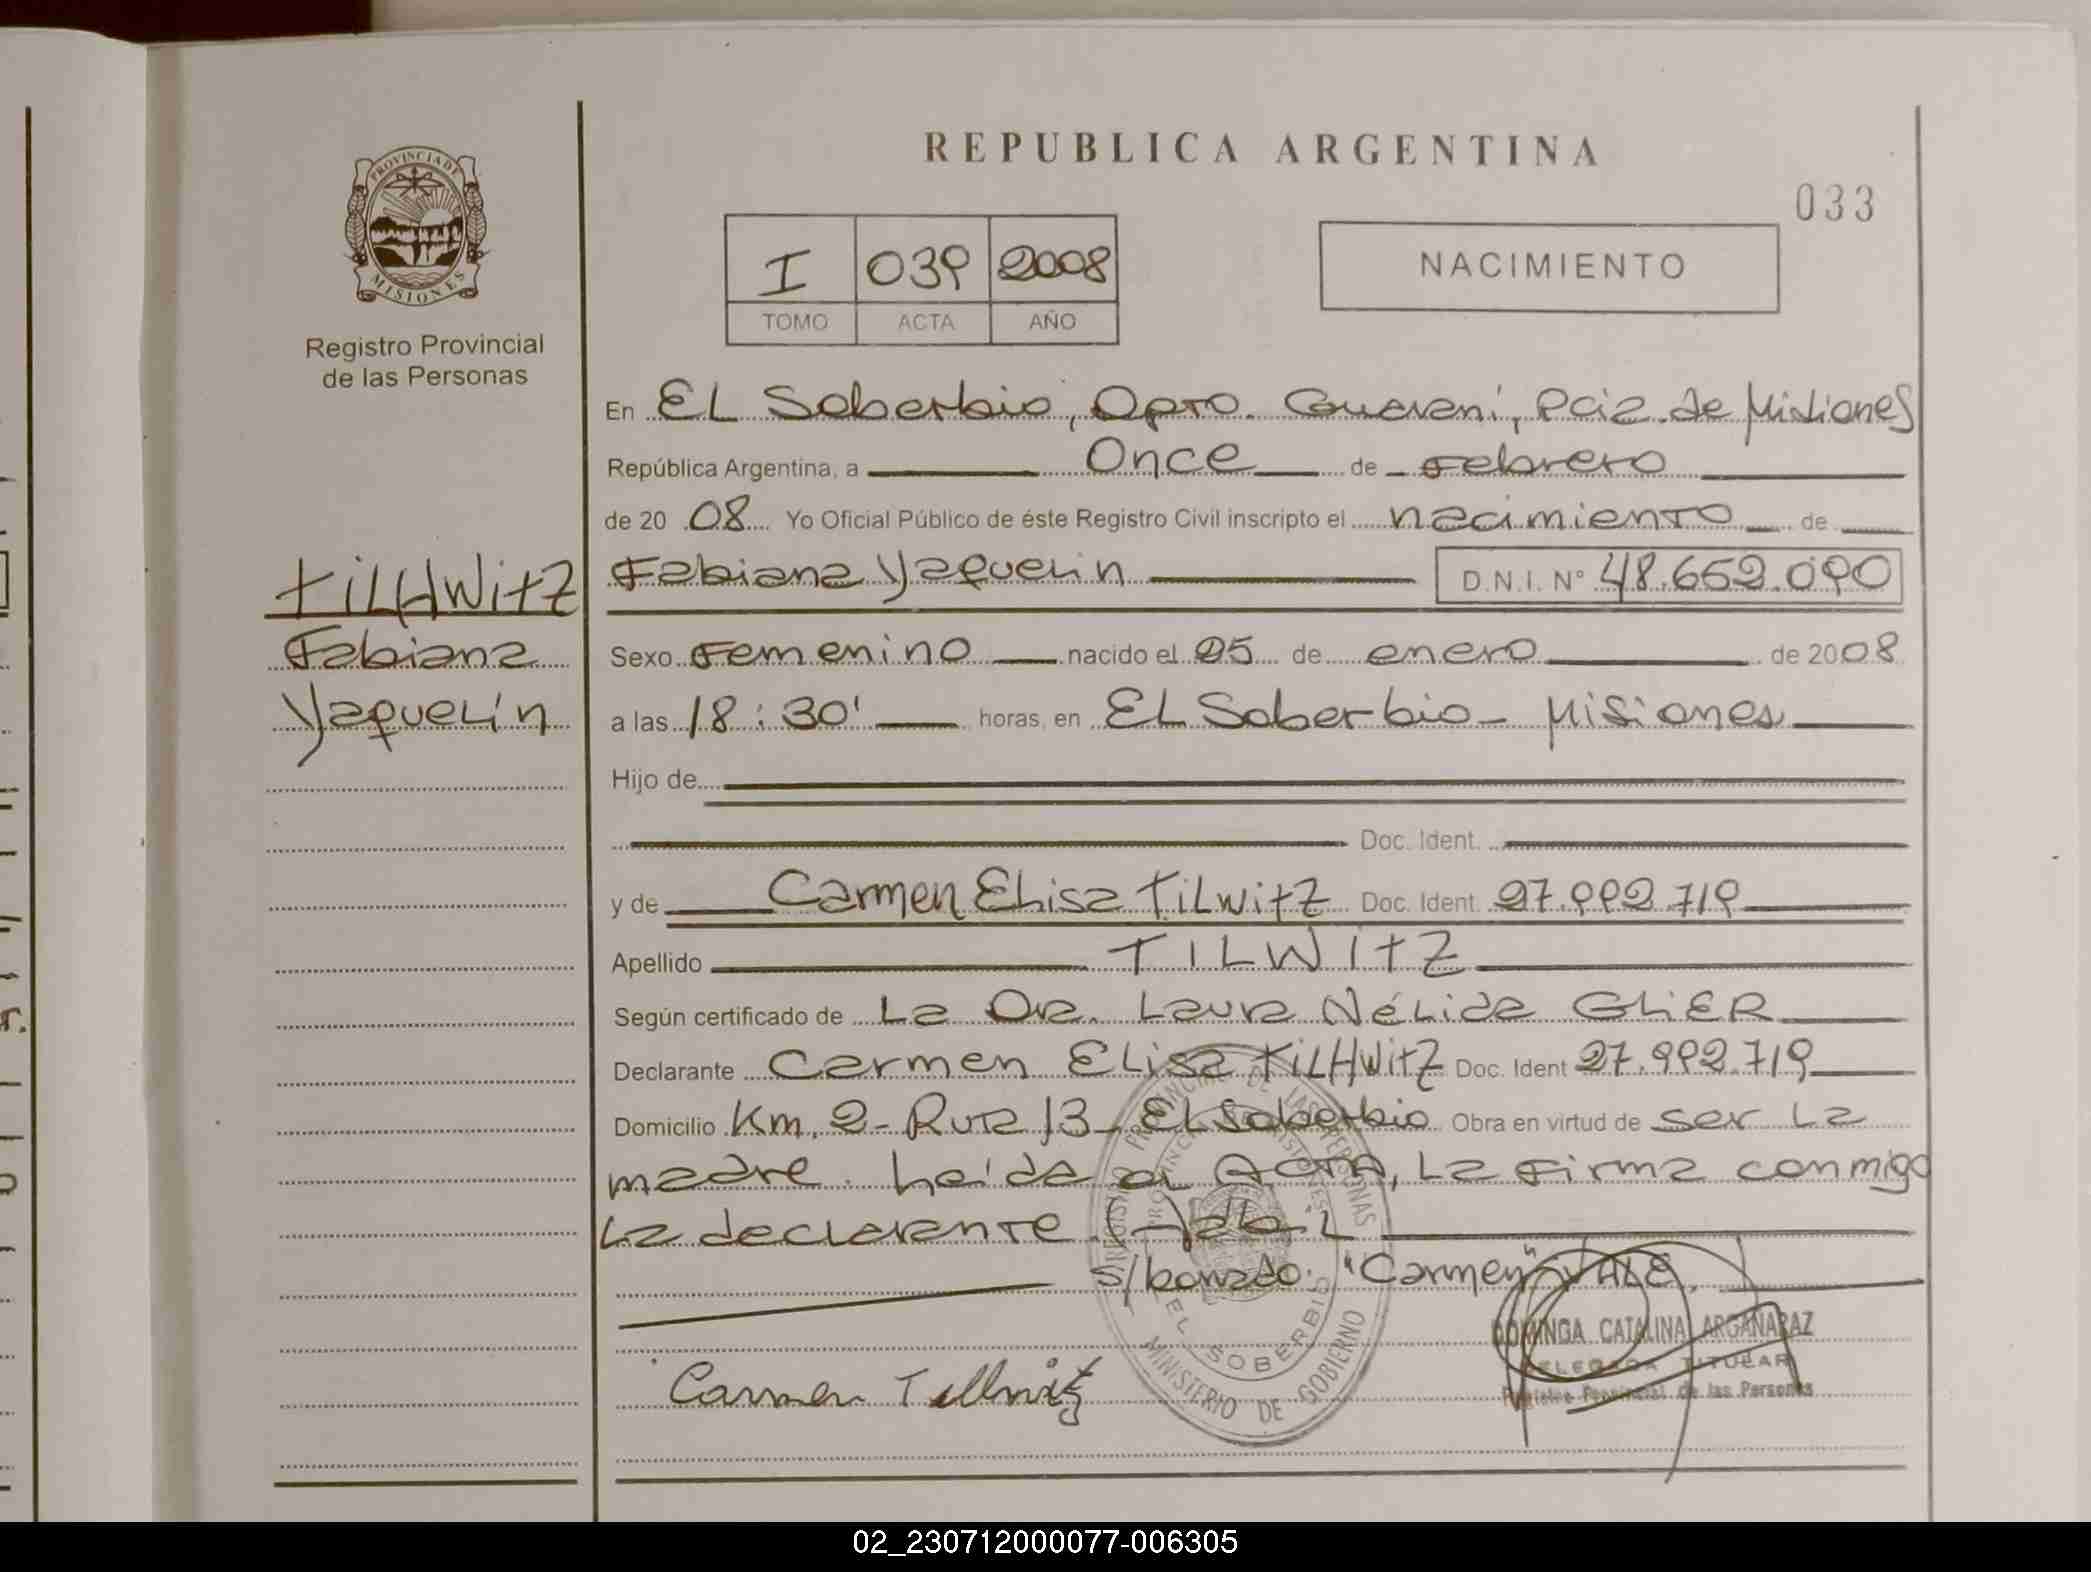 REPUBLICA ARGENTINA
033
PROVINCIA DE
MISIONES
Registro Provincial
de las Personas
I 039 2008
TOMO ACTA AÑO
NACIMIENTO
En EL Soberbio, Dpto. Guarani, Pcia. de Misiones
República Argentina, a Once de Febrero
de 20 08 Yo Oficial Público de éste Registro Civil inscripto el nacimiento de
Fabiana Yaquelin D.N.I. N° 48.652.090
TiLHWitZ
Fabiana
Yaquelin
Sexo Femenino nacido el 25 de enero de 2008
a las 18:30' horas, en EL Soberbio - Misiones
Hijo de
Doc. Ident.
y de Carmen Elisa TiLWitZ Doc. Ident. 27.992.719
Apellido TILWITZ
Según certificado de La Dra. Laura Nélida GLIER
Declarante Carmen Elisa TiLHWitZ Doc. Ident 27.992.719
Domicilio Km. 2 - Ruta 13 - EL Soberbio Obra en virtud de ser La
madre. Leida el ACTA, La firma conmigo
La declarante.
S/borrado: "Carmen" VALE.
REGISTRO PROVINCIAL DE LAS PERSONAS
PROVINCIA DE MISIONES
EL SOBERBIO
MINISTERIO DE GOBIERNO
DOMINGA CATALINA ARGAÑARAZ
DELEGADA TITULAR
Registro Provincial de las Personas
Carmen Tillwitz
02_230712000077-006305